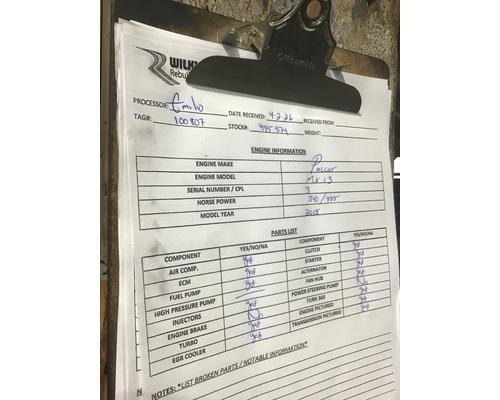 WILK
Rebui
Officemate
PROCESSOR: Emilio DATE RECEIVED: 4-2-26 RECEIVED FROM:
TAG#: 100807 STOCK#: 495 574 WEIGHT:
ENGINE INFORMATION
ENGINE MAKE Paccar
ENGINE MODEL MX13
SERIAL NUMBER / CPL 3
HORSE POWER 340/455
MODEL YEAR 2015
PARTS LIST
COMPONENT YES/NO/NA COMPONENT YES/NO/NA
AIR COMP. yes CLUTCH yes
ECM yes STARTER yes
FUEL PUMP yes ALTERNATOR yes
HIGH PRESSURE PUMP FAN HUB yes
INJECTORS yes POWER STEERING PUMP
ENGINE BRAKE No TURN 360
TURBO yes ENGINE PICTURED
EGR COOLER yes TRANSMISSION PICTURED
NOTES: *LIST BROKEN PARTS / NOTABLE INFORMATION*
N
N